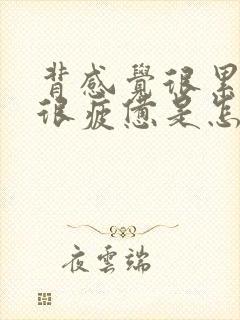 背感覺很累
很疲憊是怎
夜雲端